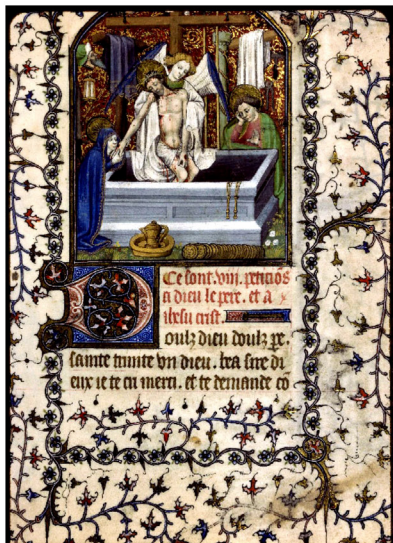 Ce sont. viii. peticios
a dieu le pere. et a
ihesu crist.
Doulz dieu doulz pe.
sainte trinite vn dieu.
eux ie te cri merci. et te demande co